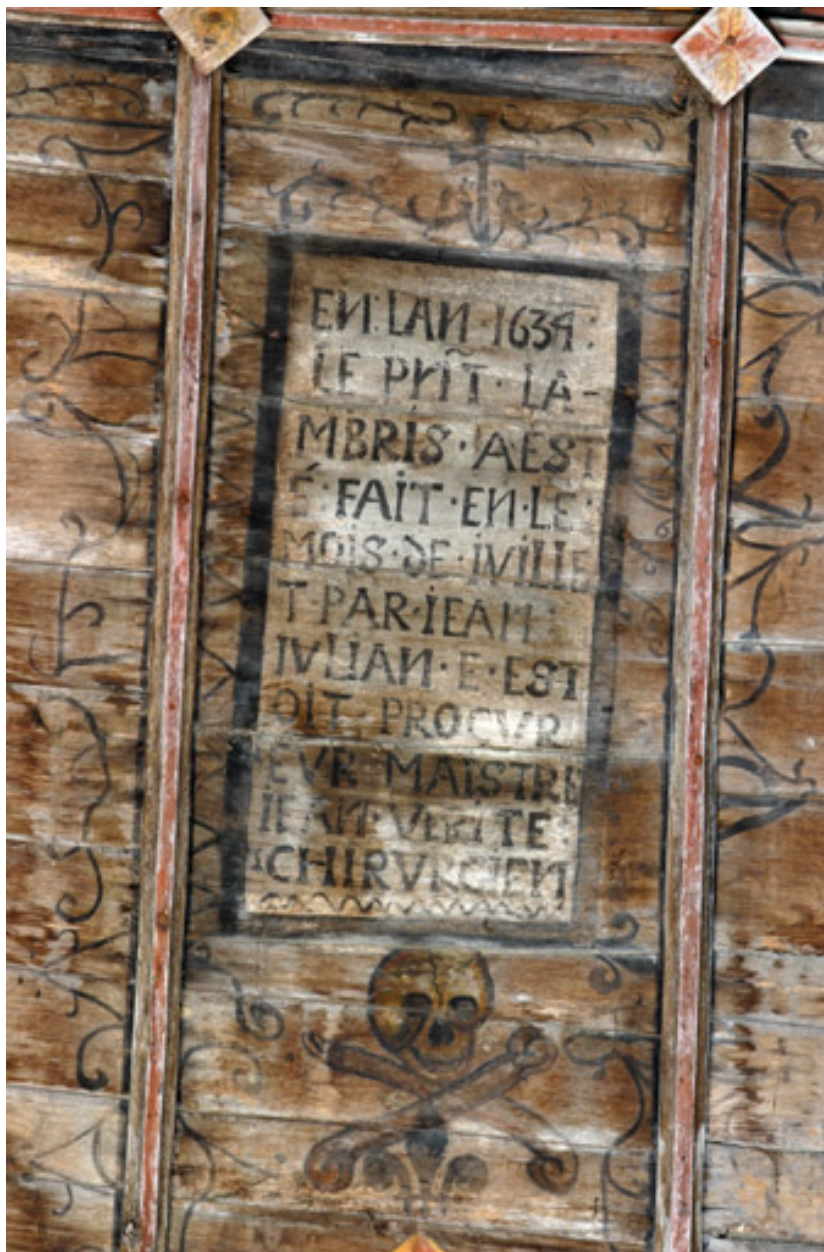 EN·LAN·1634:
LE PRÑT·LA-
MBRIS·A·EST
É·FAIT·EN·LE·
MOIS·DE·IVILLE
T·PAR·IEAN
IVLIAN·E·EST
OIT·PROCVR
EVR·MAISTRE
IEAN·VERITE
CHIRVRGIEN